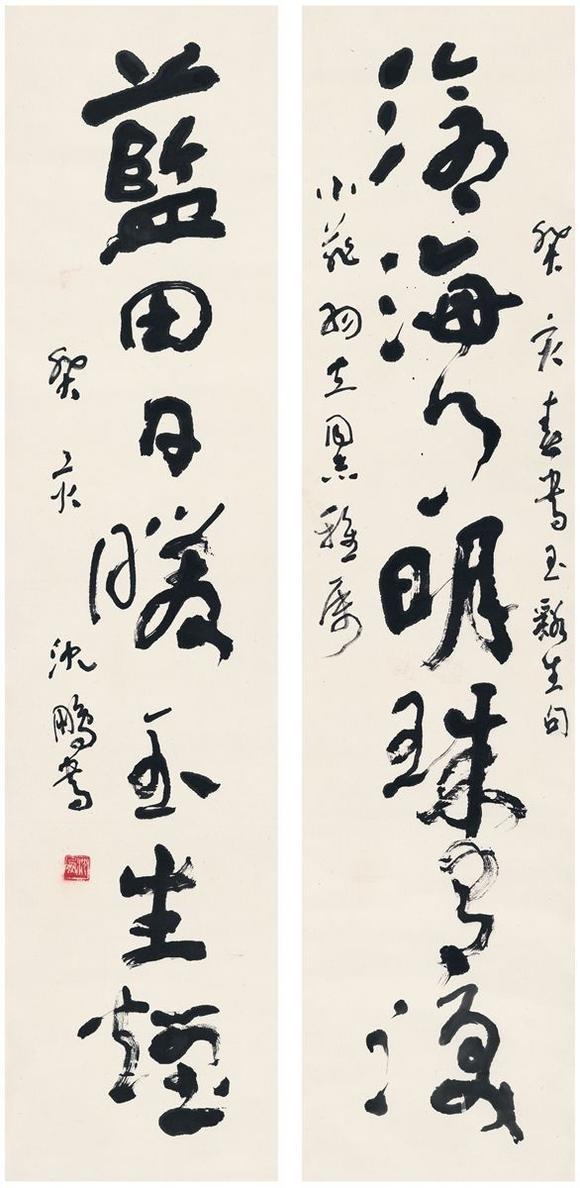 癸亥春書玉谿生句
滄海月明珠有淚
小同志雅屬
藍田日暖玉生煙
癸亥 沈鵬書